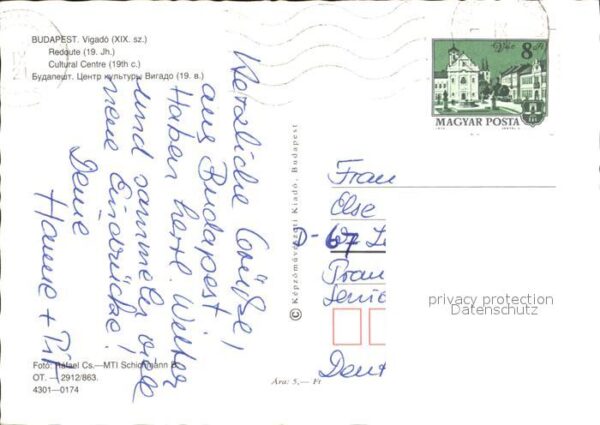 BUDAPEST. Vigadó (XIX. sz.)
Redoute (19. Jh.)
Cultural Centre (19th c.)
Будапешт. Центр культуры Вигадо (19. в.)
Herzliche Grüße!
aus Budapest
Haben herrl. Wetter
und sammeln viele
neue Eindrücke!
Deine
Hanne + Pit
Foto: Rafael Cs.—MTI
OT. — 2912/863.
4301—0174
Ára: 5,— Ft
© Képzőművészeti Kiadó, Budapest
Vác 8 Ft
MAGYAR POSTA
Frau
Else
D-67
Deut
privacy protection
Datenschutz